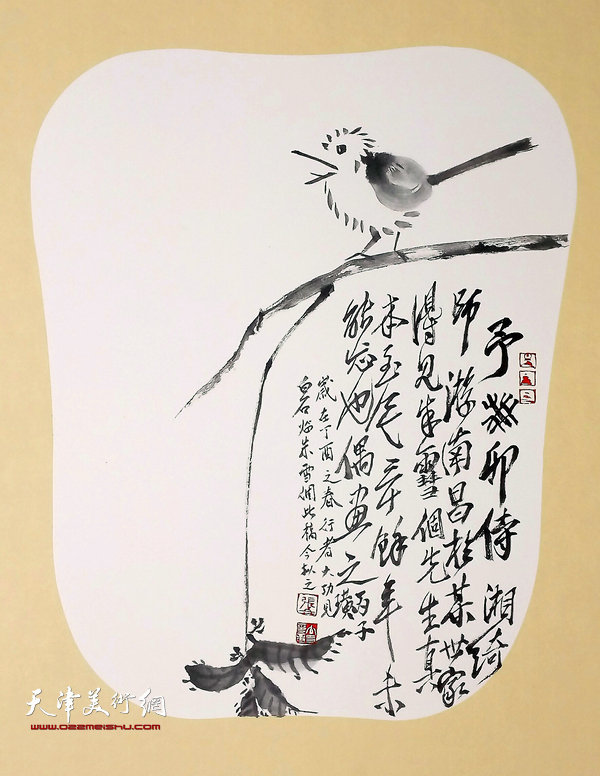 予癸卯侍湘綺
師游南昌於某世家
得见朱雪個先生真
本至今三十餘年未
能忘也偶画之丙子璜
歲在丁酉之春行者大功见
白石临朱雪個此稿今拟之
天津美術網
www.022meishu.com